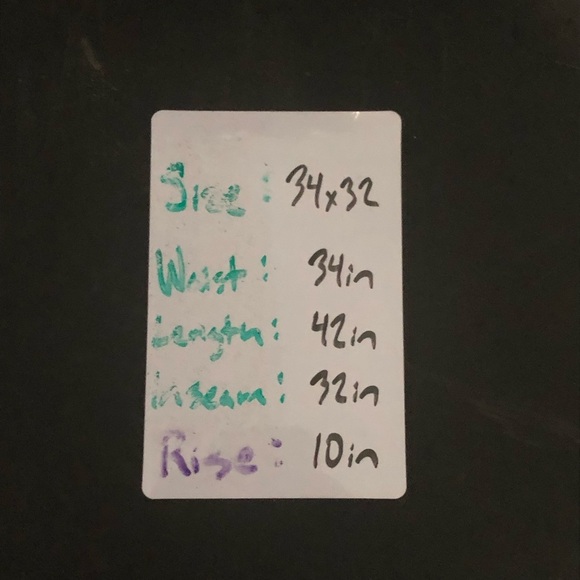 Size: 34x32
Waist: 34in
Length: 42in
inseam: 32in
Rise: 10in